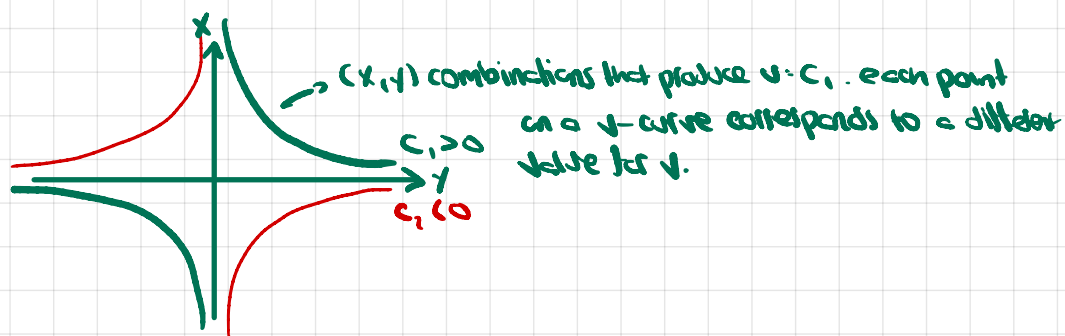 X
(X,Y) combinations that produce v=C₁. each point
on a v-curve corresponds to a different
value for v.
C₁>0
Y
C₁<0